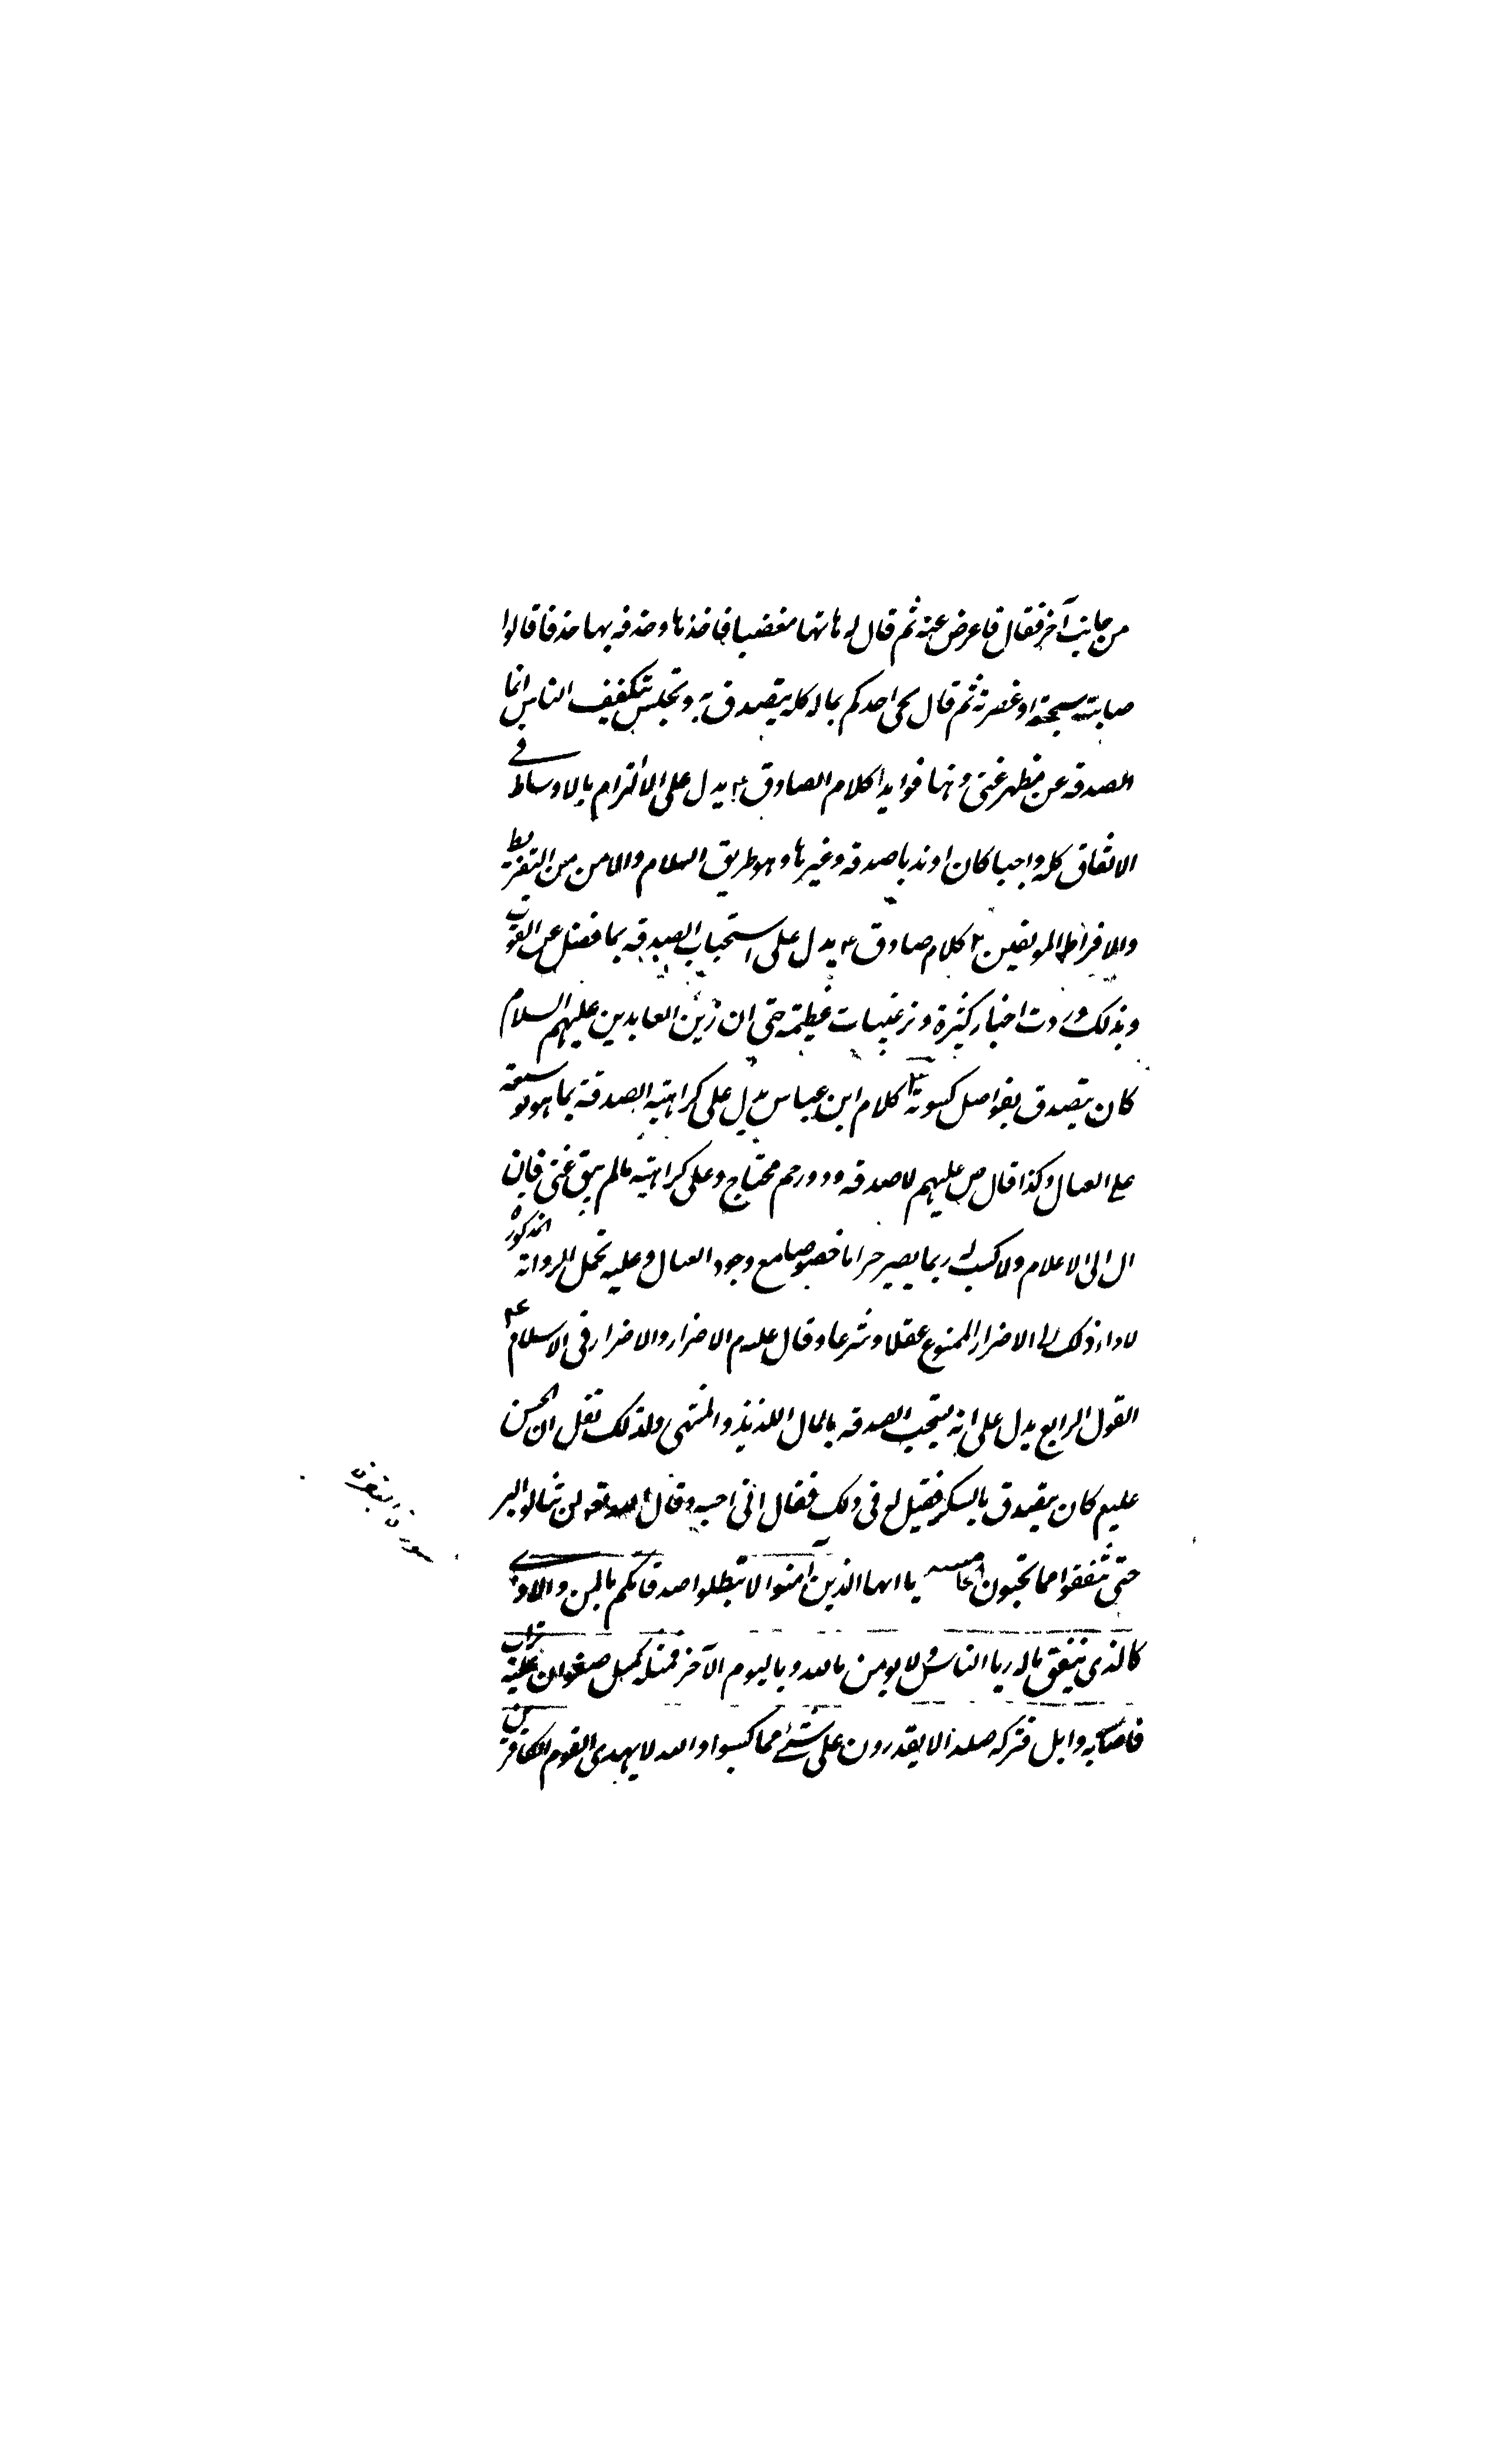 من جانب آخر فقال فاعرض عنه ثم قال له هاتها مغضبا فاخذها وحذفه بها حذفا قالوا
صابته شجته او عقرته ثم قال يجى احدكم بماله كله يتصدق به ويجلس يتكفف الناس انما
الصدقه عن ظهر غنى وهنا فوايد ا كلام الصادق ع يدل على الالتزام بالاوساط فى
الانفاق كله واجبا كان او ندبا صدقه وغيرها وهو طريق السلام والامن من التفريط
والافراط الموبقين ٢ كلام صادق ع يدل على استحباب الصدقه بما فضل عن القوت
وبذلك وردت اخبار كثيرة وترغيبات عظيمة حتى ان زين العابدين عليهم السلام
كان يتصدق بفواضل كسوته ٣ كلام ابن عباس يدل على كراهية الصدقة بما هو توسعة
على العيال وكذا قال ص عليهم لا صدقه وذو رحم محتاج وعلى كراهية مالم يبق غنى فان
ال الى الاعلام ولا كسب له ربما يصير حراما خصوصا مع وجود العيال وعليه تحمل الرواية المذكورة
لاداء ذلك الى الاضرار الممنوع عقلا وشرعا وقال عليه م لا ضرار ولا اضرار فى الاسلام ع٤
القول الرابع يدل على انه يستحب الصدقه بالمال اللذيذ والمشتهى ولذلك نقل ان الحسن
عليه م كان يتصدق بالسكر فقيل له فى ذلك فقال انى احبه وقال الله تعه لن تنالوا البر
حتى تنفقوا مما تحبون الخامسه يا ايها الذين آمنوا لا تبطلوا صدقاتكم بالمن والاذى
كالذى ينفق ماله ريا الناس ولا يومن بالله وباليوم الآخر فمثله كمثل صفوان عليه تراب
فاصابه وابل فتركه صلدا لا يقدرون على شئ مما كسبوا والله لا يهدى القوم الكافرين